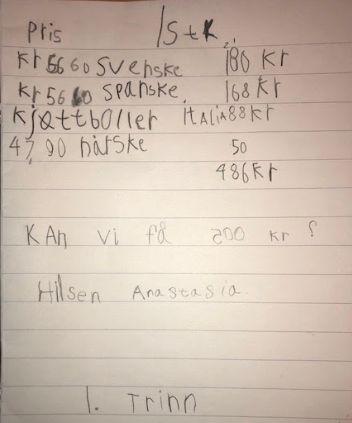 Pris /Stk
kr 5660 svenske 180 kr
kr 5660 spanske. 168 kr
kjøttboller ITALIA 88 kr
47,90 nårske 50
486 kr
KAn vi få 200 kr ?
Hilsen Anastasia.
1. Trinn